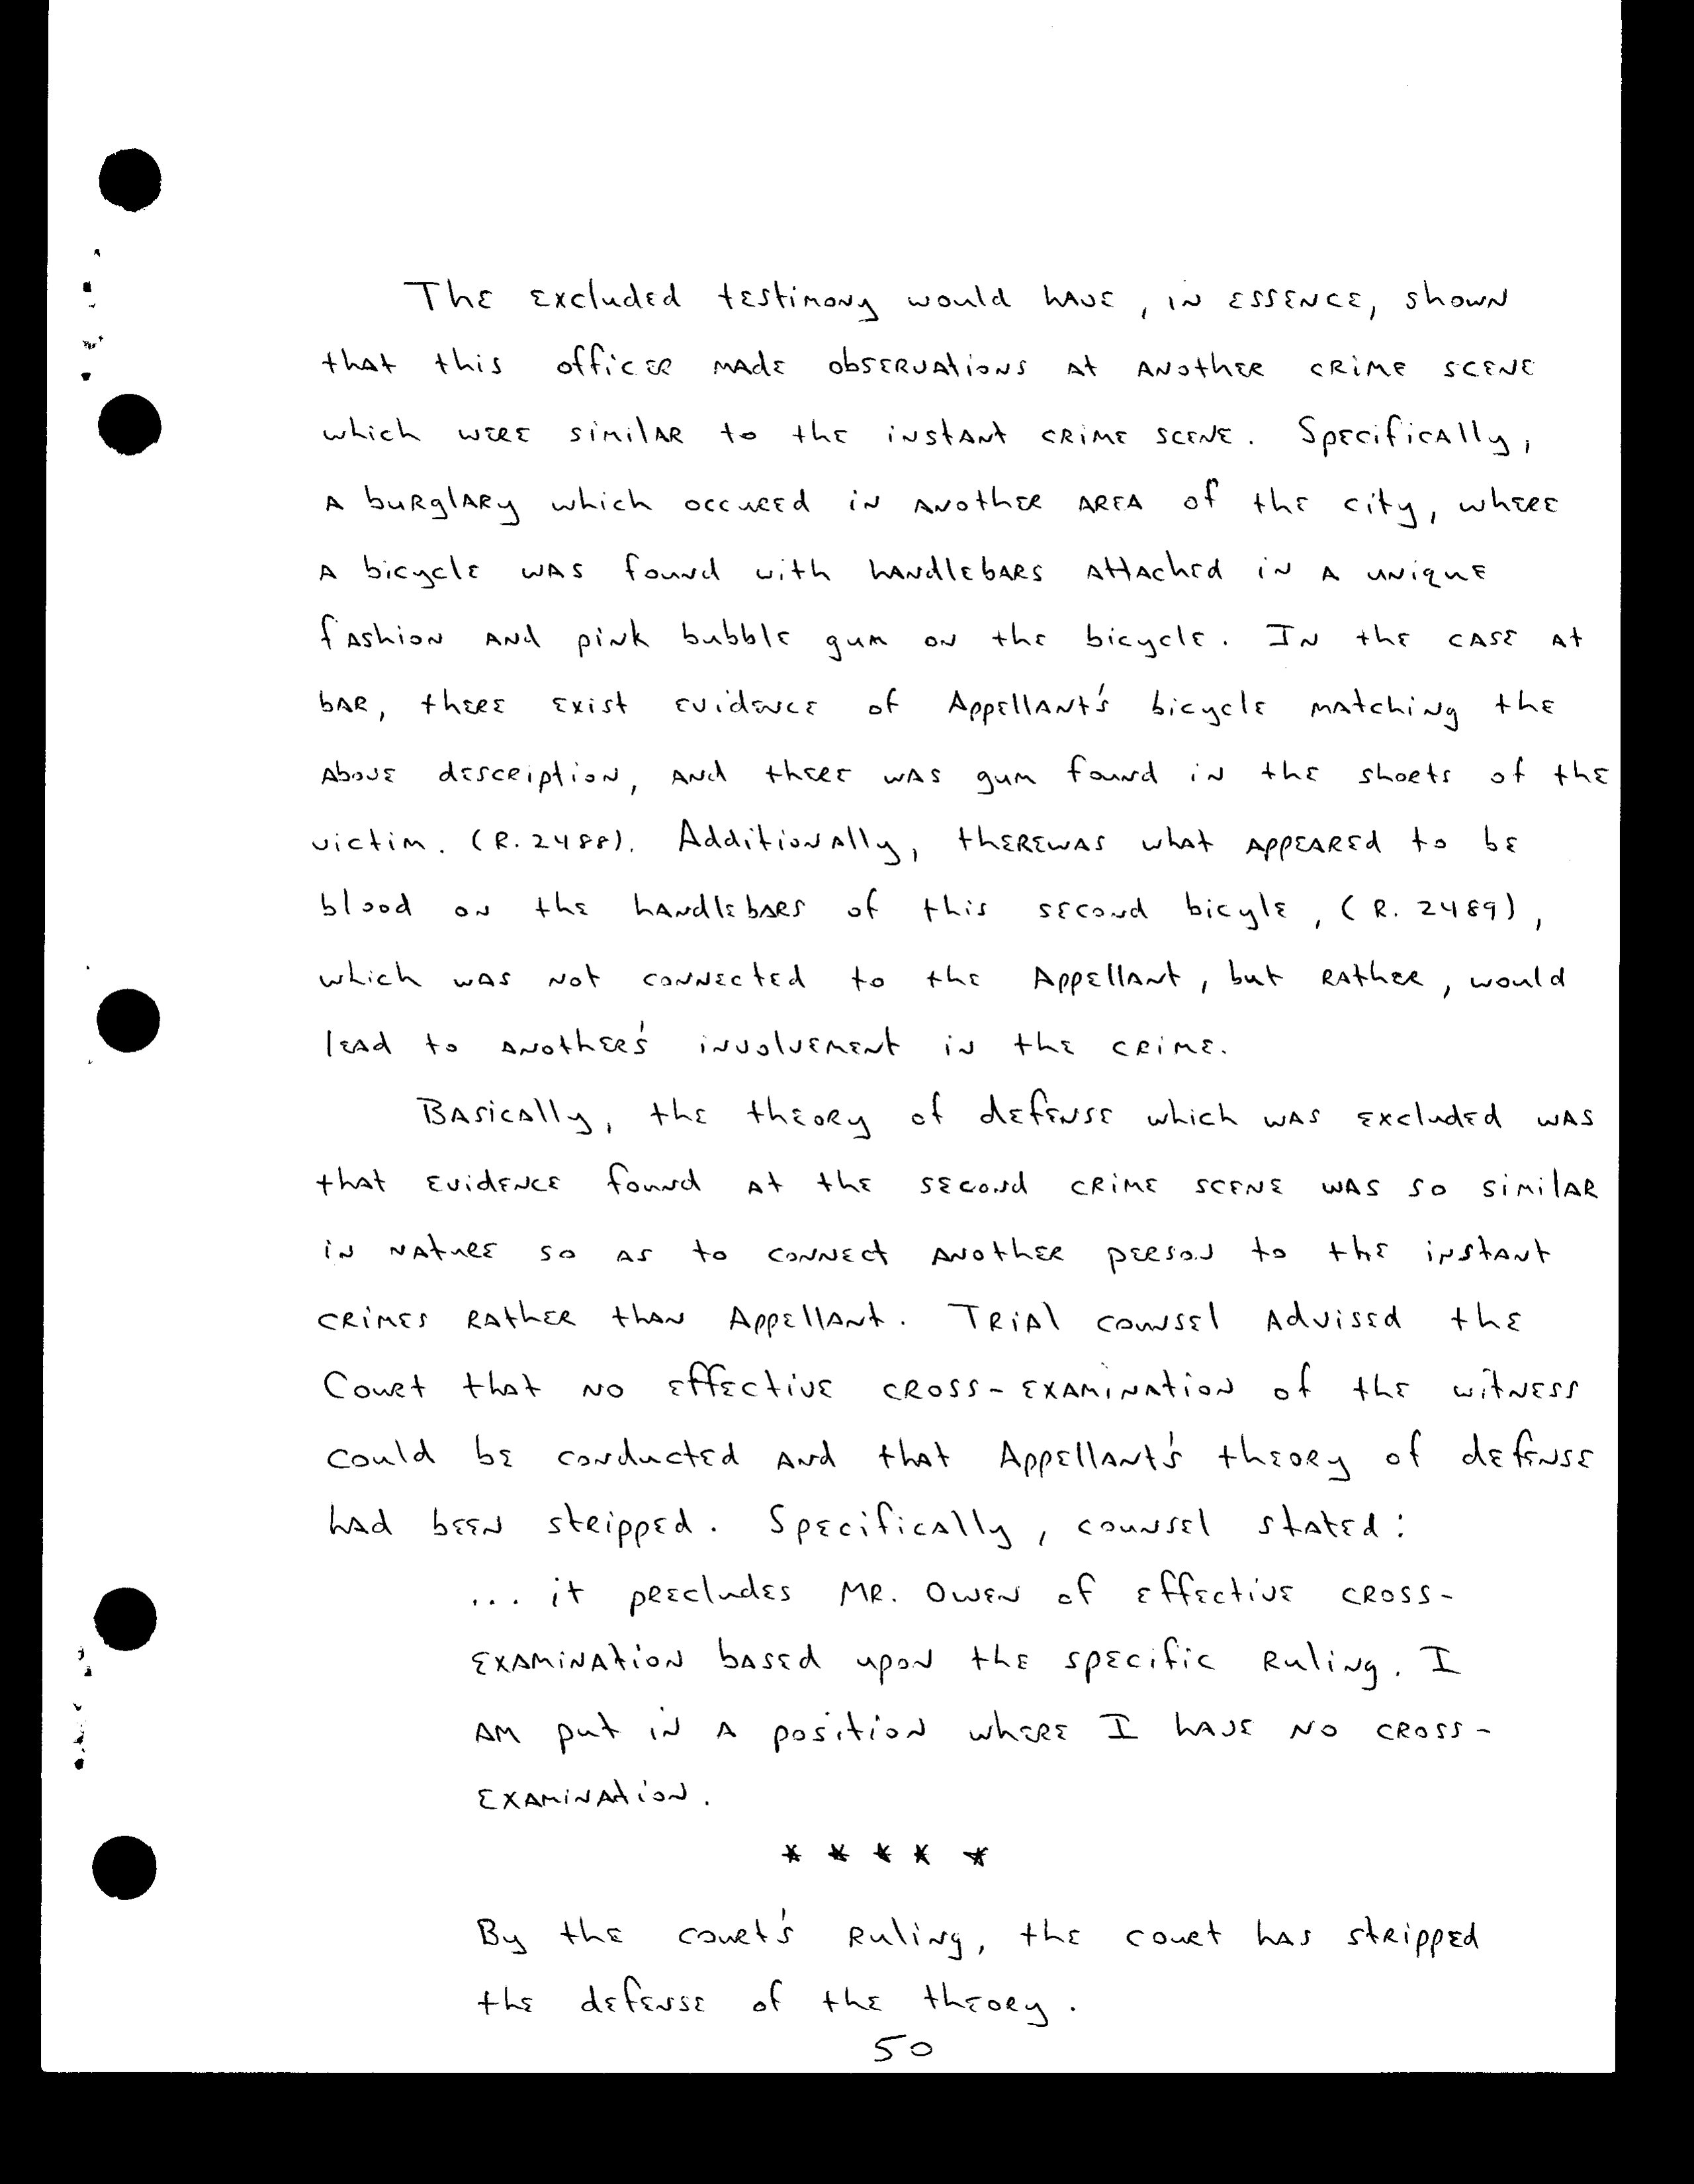 The excluded testimony would have, in essence, shown
that this officer made observations at another crime scene
which were similar to the instant crime scene. Specifically,
a burglary which occured in another area of the city, where
a bicycle was found with handlebars attached in a unique
fashion and pink bubble gum on the bicycle. In the case at
bar, there exist evidence of Appellant's bicycle matching the
above description, and there was gum found in the sheets of the
victim. (R. 2488). Additionally, therewas what appeared to be
blood on the handlebars of this second bicyle, (R. 2489),
which was not connected to the Appellant, but rather, would
lead to another's involvement in the crime.
Basically, the theory of defense which was excluded was
that evidence found at the second crime scene was so similar
in nature so as to connect another person to the instant
crimes rather than Appellant. Trial counsel advised the
Court that no effective cross-examination of the witness
could be conducted and that Appellant's theory of defense
had been stripped. Specifically, counsel stated:
... it precludes Mr. Owen of effective cross-
examination based upon the specific ruling. I
am put in a position where I have no cross-
examination.
* * * * *
By the court's ruling, the court has stripped
the defense of the theory.
50